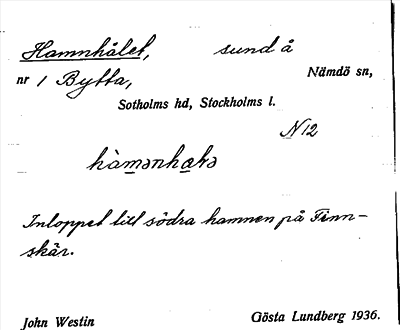 Hamnhålet, sund å
nr 1 Bytta, Nämdö sn,
Sotholms hd, Stockholms l.
N12
hàmənha̲lə
Inloppet till södra hamnen på Finn-
skär.
John Westin Gösta Lundberg 1936.